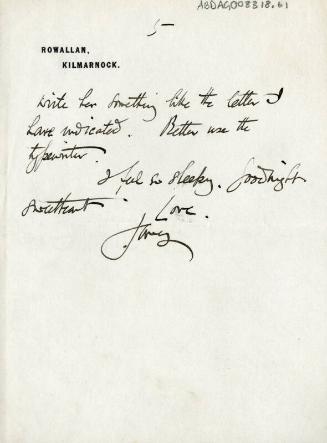 ABDAG008318.61
5
ROWALLAN,
KILMARNOCK.
write her something like the letter I
have indicated. Better use the
typewriter.
I feel so sleepy. Goodnight
sweetheart.
Love.